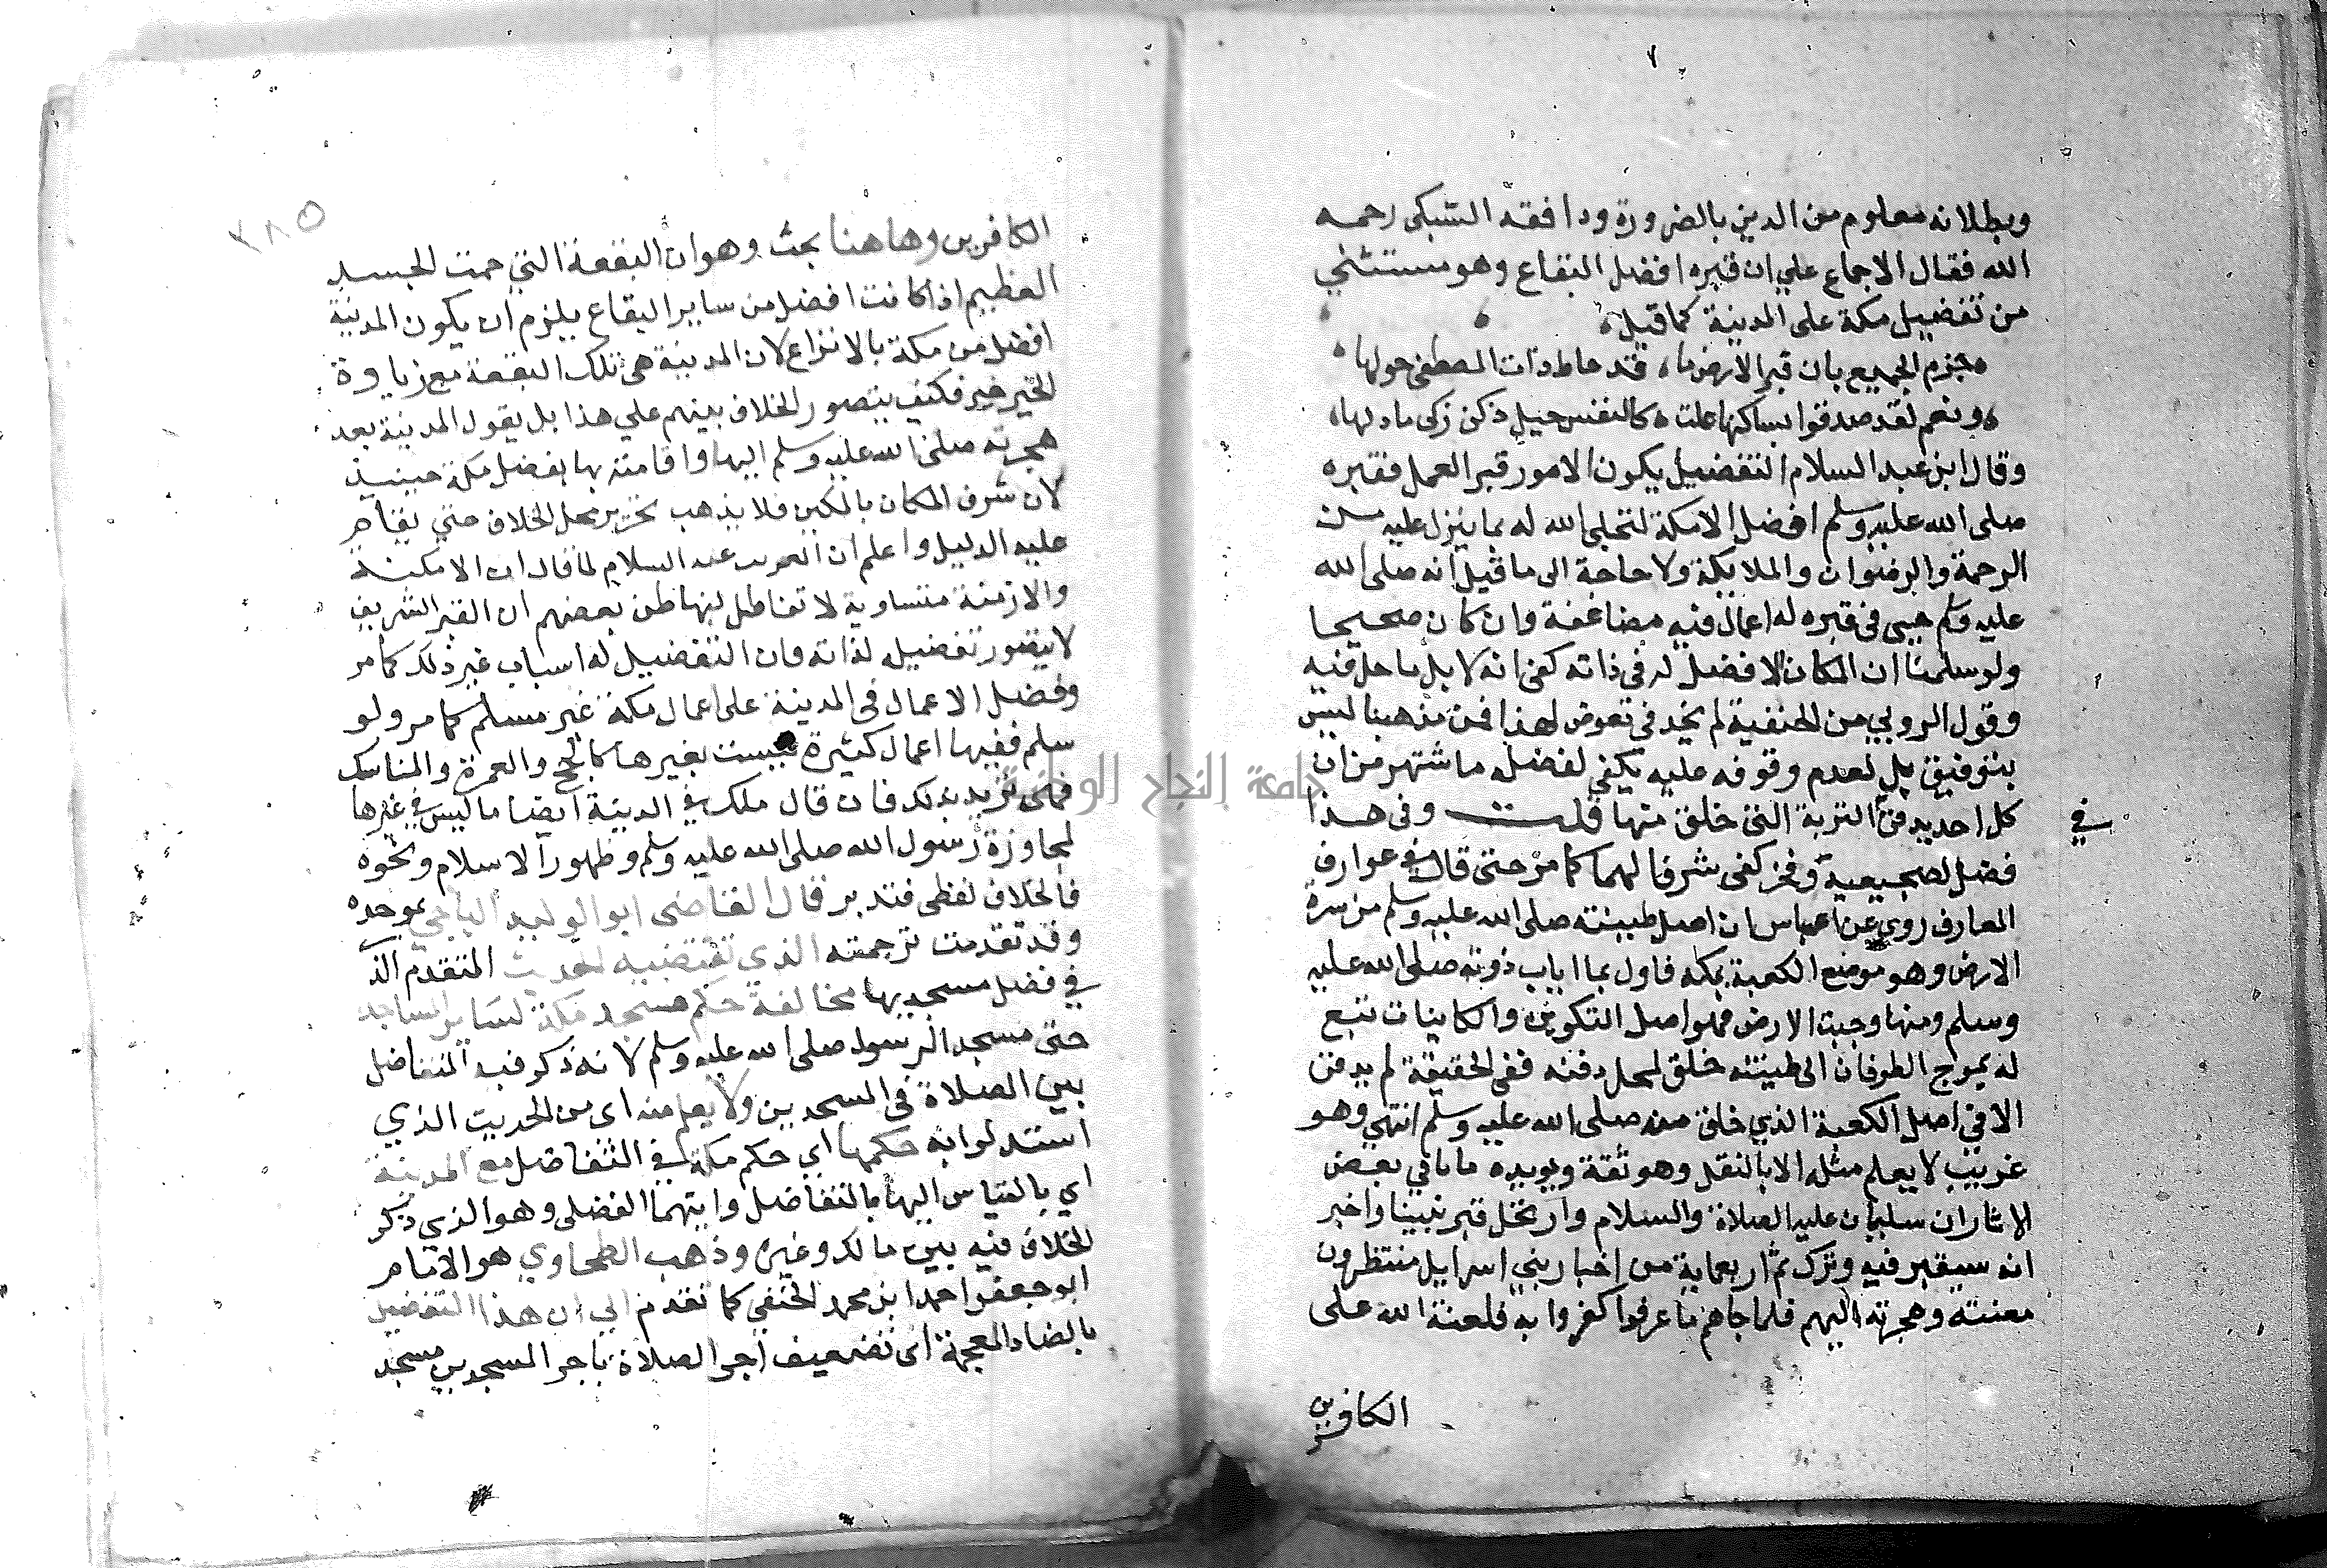 وبطلانه معلوم من الدين بالضرورة ودافقه السبكى رحمه
الله فقال الاجماع علي ان قبره افضل البقاع وهو مستثني
من تفضيل مكة على المدينة كما قيل
جزم الجميع بان قبر الارض ما قد حاط ذات المصطفى حولها
ونعم لقد صدقوا بساكنها علت كالنفس حيل ذكن زكى ماولها
وقال ابن عبد السلام التفضيل يكون الامور قبر العمل فقبره
صلى الله عليه وسلم افضل الامكة لتجلى الله له بما ينزل عليه من
الرحمة والرضوان والملايكة ولا حاجة الى ما قيل انه صلى الله
عليه وسلم حيى فى قبره له اعمال فيه مضاعفة وان كان صحيحا
ولو سلمنا ان المكان لا فضل له فى ذاته كفى انه لا بل ما حل فيه
وقول الروبي من الحنفية لم يخد فى تعوض لهذا فمن مذهبنا ليس
بتوفيق بل لعدم وقوفه عليه يكفي لفضله ما شتهر من ان
كل احد يدفن التربة التى خلق منها قلت وفى هذا
في
فضل لصجيعيه وفخر كفى شرفا لهما كما مر حتى قال فى عوارف
المعارف روي عن عباس ان اصل طينته صلى الله عليه وسلم من سرة
الارض وهو موضع الكعبة بمكه فاول بما اياب ذرته صلى الله عليه
وسلم ومنها وجبت الارض فهلو اصل التكوين والكاينات تتبع
له يموج الطوفان الى طينته خلق لمحل دفنه ففى الحقيقة لم يدفن
الا في اصل الكعبة الذي خلق منه صلى الله عليه وسلم انتهي وهو
غريب لا يعلم مثله الا بالنقد وهو ثقة ويويده ما يا في بعض
الاثار ان سليمان عليه الصلاة والسلام وار تخل قبر نبينا واخبر
انه سيقبر فيه وترك ثم اربعماية من اخبار بني اسرايل منتظرون
معنته وهجرته اليهم فلما جاهم ما عرفوا كفروا به فلعنة الله على
الكافرين
٢٨٥
الكافرين وها هنا بحث وهو ان البقعة التي حمت الجسد
العظيم اذا كانت افضل من ساير البقاع يلزم ان يكون المدينة
افضل من مكة بالا نزاع لان المدينة هى تلك البقعة مع زياوة
الخير خير فكيف يتصور الخلاف بينهم علي هذا بل يقول المدينة بعد
هجرته صلى الله عليه وسلم اليها واقامته بها افضل مكة حينيذ
لان شرف المكان بالمكين فلا يذهب تحرير محل الخلاف حتي يقام
عليه الدليل واعلم ان العرب عبد السلام لما قال ان الامكنة
والازمنة متساوية لا تفاظل لها ظن بعضهم ان القبر الشريف
لا يتصور تفضيله لذاته وان التفضيل له اسباب غير ذلك كما مر
وفضل الاعمال فى المدينة على اعمال مكة غير مسلم كما مر ولو
سلم ففيها اعمال كثيرة ليست بغيرها كالحج والعمرة والمناسك
فهى تزيد بذلك فان قال ملك في المدينة ايضا ما ليس في غيرها
لمجاوزة رسول الله صلى الله عليه وسلم وظهور الاسلام ونحوه
فالخلاف لفظى فتدبر قال القاضى ابو الوليد الباجي بموحده
وقد تقدمت ترجمته الذي تقتضيه الحديث المتقدم الذ
في فضل مسجديها مخالفة حكم مسجد مكة لساير المساجد
حتى مسجد الرسول صلى الله عليه وسلم لانه ذكر فيه التفاضل
بين الصلاة فى المسجدين ولا يعلم منه اى من الحديث الذي
استدلوا به حكمها اي حكم مكة في التفاضل مع المدينة
اي بالقياس اليها بالتفاضل وايتهما الفضلى وهو الذي ذكر
الخلاف فيه بين مالك وغيره وذهب الطحاوي هو الامام
ابو جعفر احمد ابن محمد الحنفي كما تقدم الي ان هذا التفضيل
بالضاد المعجمة اى تضعيف اجر الصلاة باجر المسجدين مسجد
جامعة النجاح الوطنية